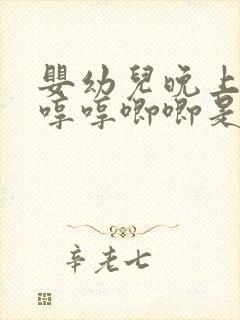 嬰幼兒晚上
哼哼唧唧是
辛老七